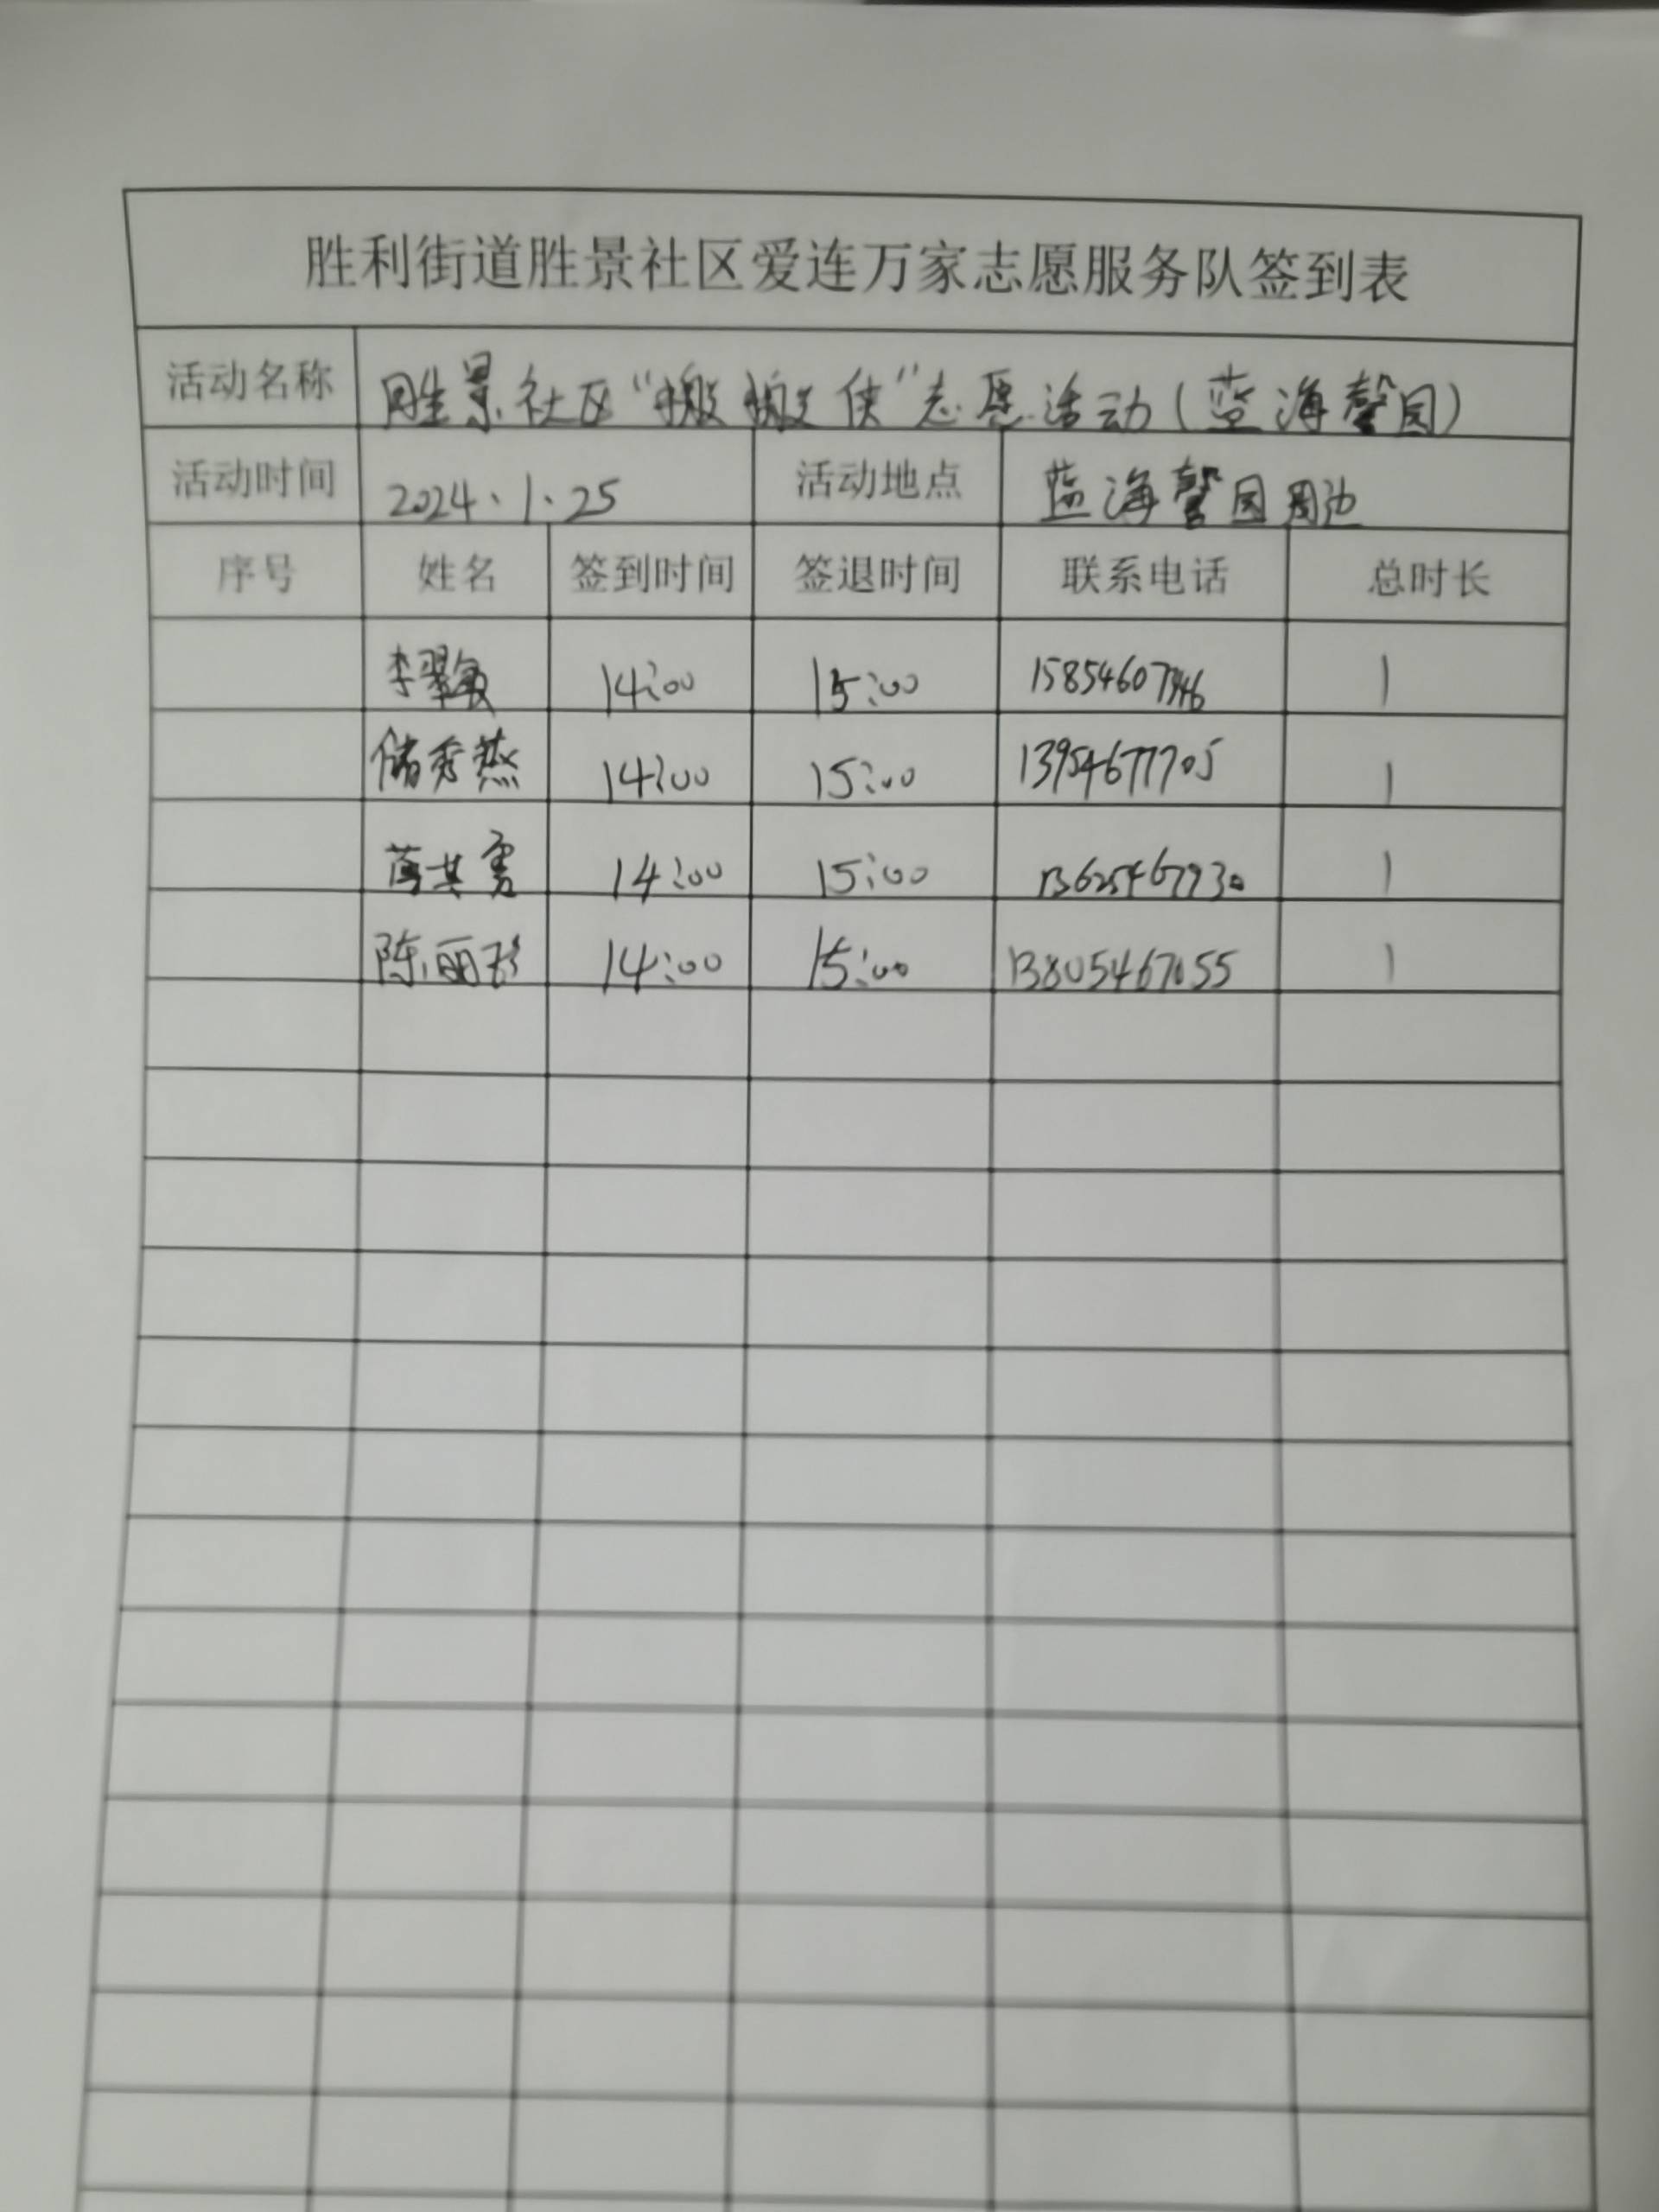 胜利街道胜景社区爱连万家志愿服务队签到表
活动名称 胜景社区“搬搬侠”志愿活动(蓝海馨园)
活动时间 2024、1、25 活动地点 蓝海馨园周边
序号 姓名 签到时间 签退时间 联系电话 总时长
李翠敏 14:00 15:00 1
储秀燕 14:00 15:00 13954677705 1
其勇 14:00 15:00 1
陈丽 14:00 15:00 13805467055 1